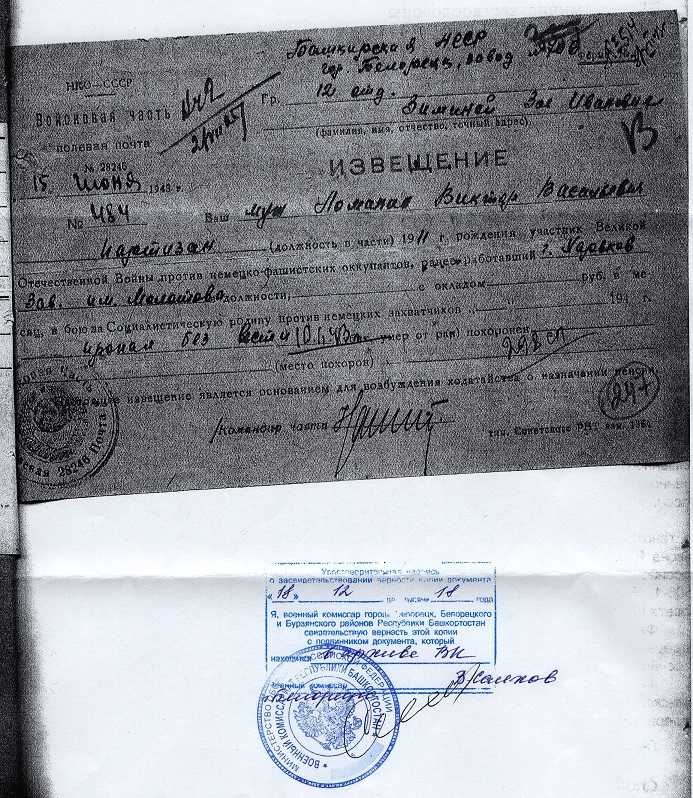 Башкирская АССР
гор. Белорецк, завод
НКО—СССР
Войсковая часть
полевая почта
№ 28246
15 Июня 1943 г.
№ 484
Гр. 12 отд.
Зиминой Зое Ивановне
(фамилия, имя, отчество, точный адрес)
ИЗВЕЩЕНИЕ
Ваш муж Ломакин Виктор Васильевич
партизан (должность в части) 1911 г. рождения участник Великой
Отечественной Войны против немецко-фашистских оккупантов, ранее работавший г. Харьков
Зав. им. Молотова должности, с окладом руб. в ме-
сяц, в бою за Социалистическую родину против немецких захватчиков „ " 194 г.
пропал без вести 10.6.43 умер от ран) похоронен
(место похорон)
Настоящее извещение является основанием для возбуждения ходатайства о назначении пенсии
247
Командир части
28246 Почта
Удостоверительная надпись
о засвидетельствовании верности копии документа
„18" 12 две тысячи 18 года
Я, военный комиссар города Белорецк, Белорецкого
и Бурзянского районов Республики Башкортостан
свидетельствую верность этой копии
с подлинником документа, который
находится в архиве ВК
Военный комиссар
ВОЕННЫЙ КОМИССАР РЕСПУБЛИКИ БАШКОРТОСТАН